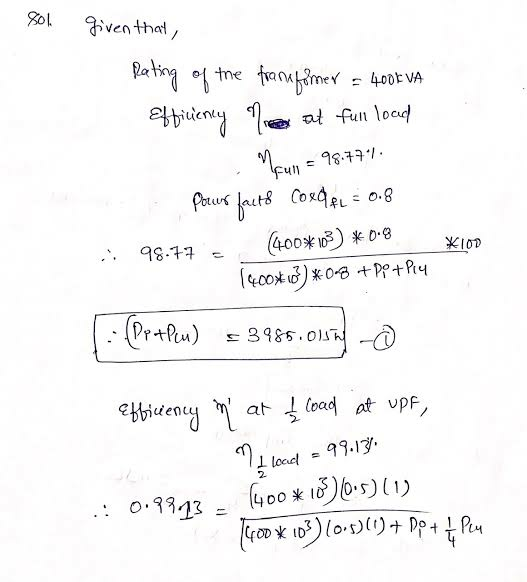 Sol. Given that,
Rating of the transformer = 400kVA
Efficiency η at full load
η Full = 98.77%.
Power factor Cosϕ FL = 0.8
∴ 98.77 = (400*10³) * 0.8 / (400*10³)*0.8 + Pi + Pcu *100
∴ (Pi+Pcu) = 3985.015W — ①
Efficiency 'η' at 1/2 load at UPF,
η 1/2 load = 99.13%.
∴ 0.9913 = (400 * 10³)(0.5)(1) / (400 * 10³)(0.5)(1) + Pi + 1/4 Pcu